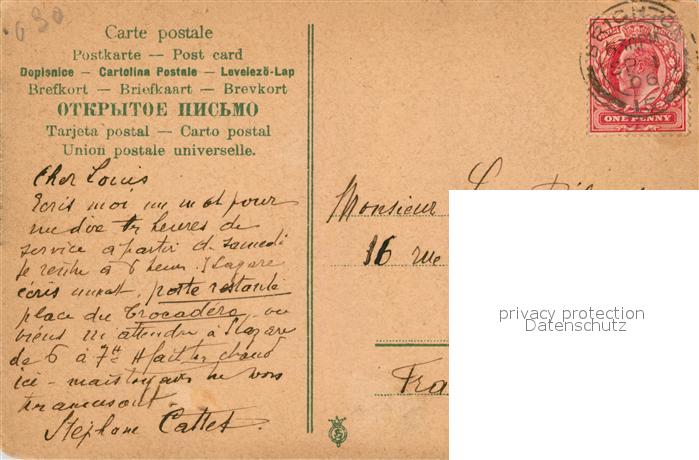 Carte postale
Postkarte — Post card
Dopisnice — Cartolina Postale — Levelező-Lap
Brefkort — Briefkaart — Brevkort
ОТКРЫТОЕ ПИСЬМО
Tarjeta postal — Carto postal
Union postale universelle.
Cher Louis
Ecris moi un mot pour
me dire heures de
service à partir d samedi
Je rentre à 6 heur
écris poste restante
place du Trocadéro, ou
viens m attendre à
de 6 à 7h fait chaud
ici - mais
Stéphane Cattet
BRIGHTON
06
ONE PENNY
Monsieur
16 rue
Fra
privacy protection
Datenschutz